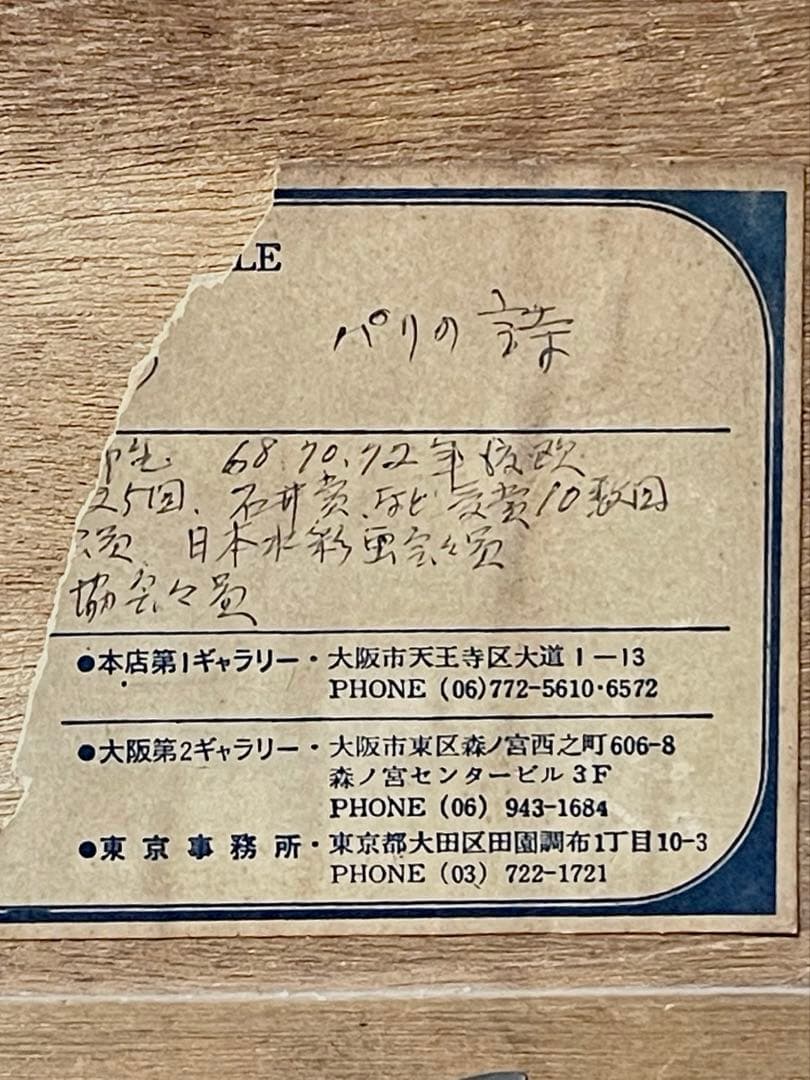 LE
パリの詩
68.70.72年渡欧
25回、石井賞、など受賞10数回
員、日本水彩画会々員
協会々員
●本店第1ギャラリー・大阪市天王寺区大道1-13
PHONE (06)772-5610・6572
●大阪第2ギャラリー・大阪市東区森ノ宮西之町606-8
森ノ宮センタービル3F
PHONE (06) 943-1684
●東京事務所・東京都大田区田園調布1丁目10-3
PHONE (03) 722-1721